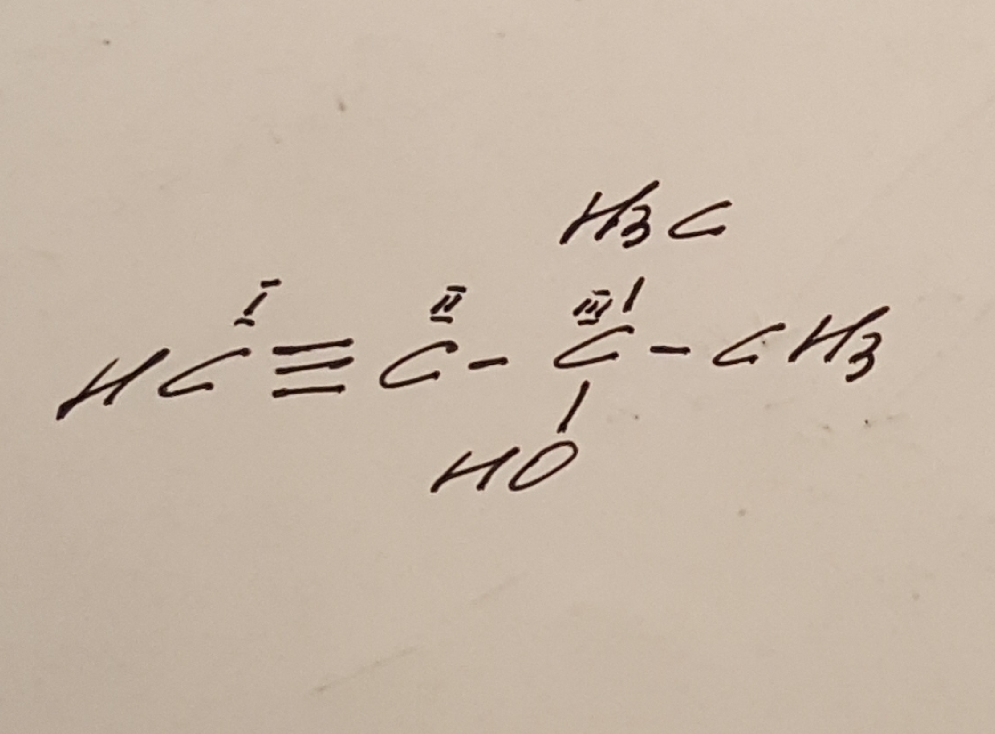 H3C
I II III
HC≡C-C-CH3
HO